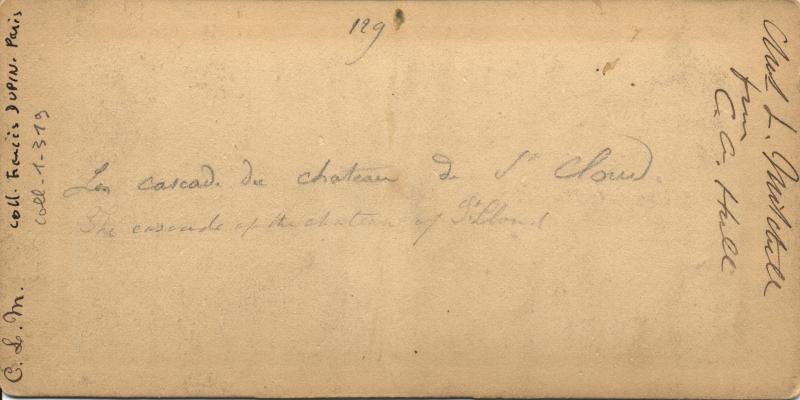 129
La cascade du chateau de St Cloud.
The cascade of the chateau of St Cloud
Chas L. Mitchell
from
C. C. Hull
coll. Francis DUPIN. Paris
coll-1-319
C. L. M.